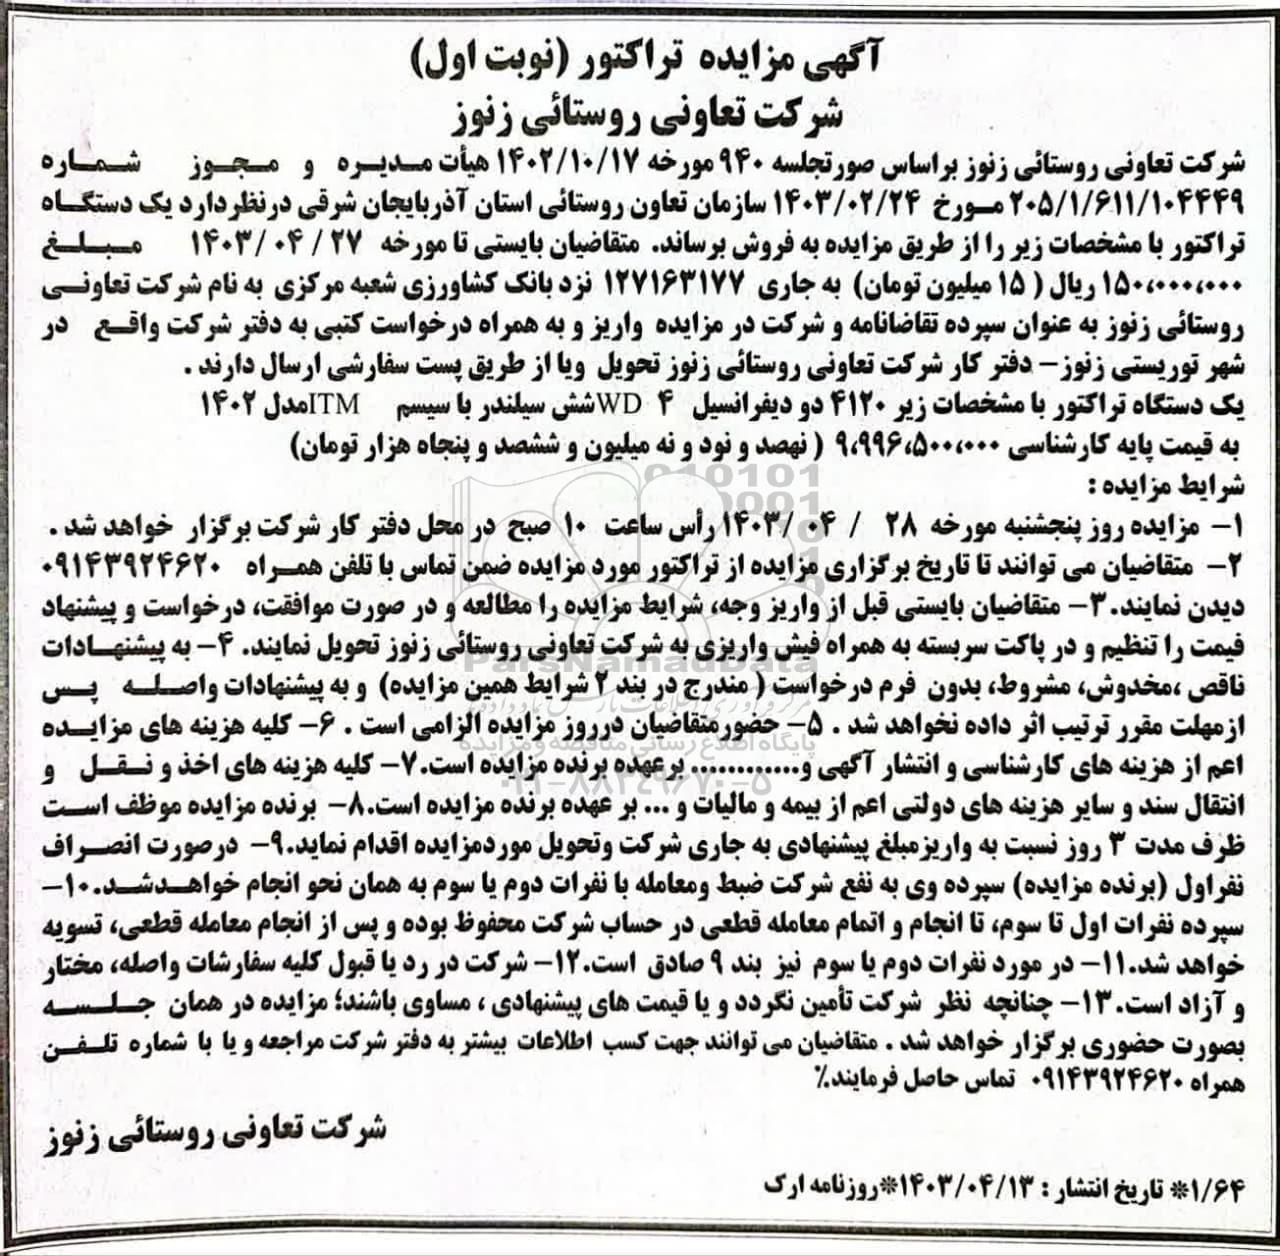 آگهی مزایده تراکتور (نوبت اول)
شرکت تعاونی روستائی زنوز
شرکت تعاونی روستائی زنوز براساس صورتجلسه ۹۴۰ مورخه ۱۴۰۲/۱۰/۱۷ هیأت مدیره و مجوز شماره
۲۰۵/۱/۶۱۱/۱۰۴۴۴۹ مورخ ۱۴۰۳/۰۲/۲۴ سازمان تعاون روستائی استان آذربایجان شرقی درنظردارد یک دستگاه
تراکتور با مشخصات زیر را از طریق مزایده به فروش برساند. متقاضیان بایستی تا مورخه ۲۷ / ۰۴ /۱۴۰۳ مبلغ
۱۵۰،۰۰۰،۰۰۰ ریال ( ۱۵ میلیون تومان) به جاری ۱۲۷۱۶۳۱۷۷ نزد بانک کشاورزی شعبه مرکزی به نام شرکت تعاونی
روستائی زنوز به عنوان سپرده تقاضانامه و شرکت در مزایده واریز و به همراه درخواست کتبی به دفتر شرکت واقع در
شهر توریستی زنوز– دفتر کار شرکت تعاونی روستائی زنوز تحویل ویا از طریق پست سفارشی ارسال دارند .
یک دستگاه تراکتور با مشخصات زیر ۴۱۲۰ دو دیفرانسیل ۴ WDشش سیلندر با سیسم ITMمدل ۱۴۰۲
به قیمت پایه کارشناسی ۹،۹۹۶،۵۰۰،۰۰۰ ( نهصد و نود و نه میلیون و ششصد و پنجاه هزار تومان)
شرایط مزایده :
۱– مزایده روز پنجشنبه مورخه ۲۸ / ۰۴ /۱۴۰۳ رأس ساعت ۱۰ صبح در محل دفتر کار شرکت برگزار خواهد شد .
۲– متقاضیان می توانند تا تاریخ برگزاری مزایده از تراکتور مورد مزایده ضمن تماس با تلفن همراه ۰۹۱۴۳۹۲۴۶۲۰
دیدن نمایند.۳– متقاضیان بایستی قبل از واریز وجه، شرایط مزایده را مطالعه و در صورت موافقت، درخواست و پیشنهاد
قیمت را تنظیم و در پاکت سربسته به همراه فیش واریزی به شرکت تعاونی روستائی زنوز تحویل نمایند. ۴– به پیشنهادات
ناقص ،مخدوش، مشروط، بدون فرم درخواست ( مندرج در بند ۲ شرایط همین مزایده) و به پیشنهادات واصله پس
ازمهلت مقرر ترتیب اثر داده نخواهد شد . ۵– حضورمتقاضیان درروز مزایده الزامی است . ۶– کلیه هزینه های مزایده
اعم از هزینه های کارشناسی و انتشار آگهی و............ برعهده برنده مزایده است.۷– کلیه هزینه های اخذ و نقل و
انتقال سند و سایر هزینه های دولتی اعم از بیمه و مالیات و ... بر عهده برنده مزایده است.۸– برنده مزایده موظف است
ظرف مدت ۳ روز نسبت به واریزمبلغ پیشنهادی به جاری شرکت وتحویل موردمزایده اقدام نماید.۹– درصورت انصراف
نفراول (برنده مزایده) سپرده وی به نفع شرکت ضبط ومعامله با نفرات دوم یا سوم به همان نحو انجام خواهدشد.۱۰–
سپرده نفرات اول تا سوم، تا انجام و اتمام معامله قطعی در حساب شرکت محفوظ بوده و پس از انجام معامله قطعی، تسویه
خواهد شد.۱۱– در مورد نفرات دوم یا سوم نیز بند ۹ صادق است.۱۲– شرکت در رد یا قبول کلیه سفارشات واصله، مختار
و آزاد است.۱۳– چنانچه نظر شرکت تأمین نگردد و یا قیمت های پیشنهادی ، مساوی باشند؛ مزایده در همان جلسه
بصورت حضوری برگزار خواهد شد . متقاضیان می توانند جهت کسب اطلاعات بیشتر به دفتر شرکت مراجعه و یا با شماره تلفن
همراه ۰۹۱۴۳۹۲۴۶۲۰ تماس حاصل فرمایند٪
شرکت تعاونی روستائی زنوز
۱/۶۴* تاریخ انتشار : ۱۴۰۳/۰۴/۱۳*روزنامه ارک
ParsNamadData
پایگاه اطلاع رسانی مناقصه و مزایده
۰۲۱-۸۸۳۴۹۶۷۰-۵